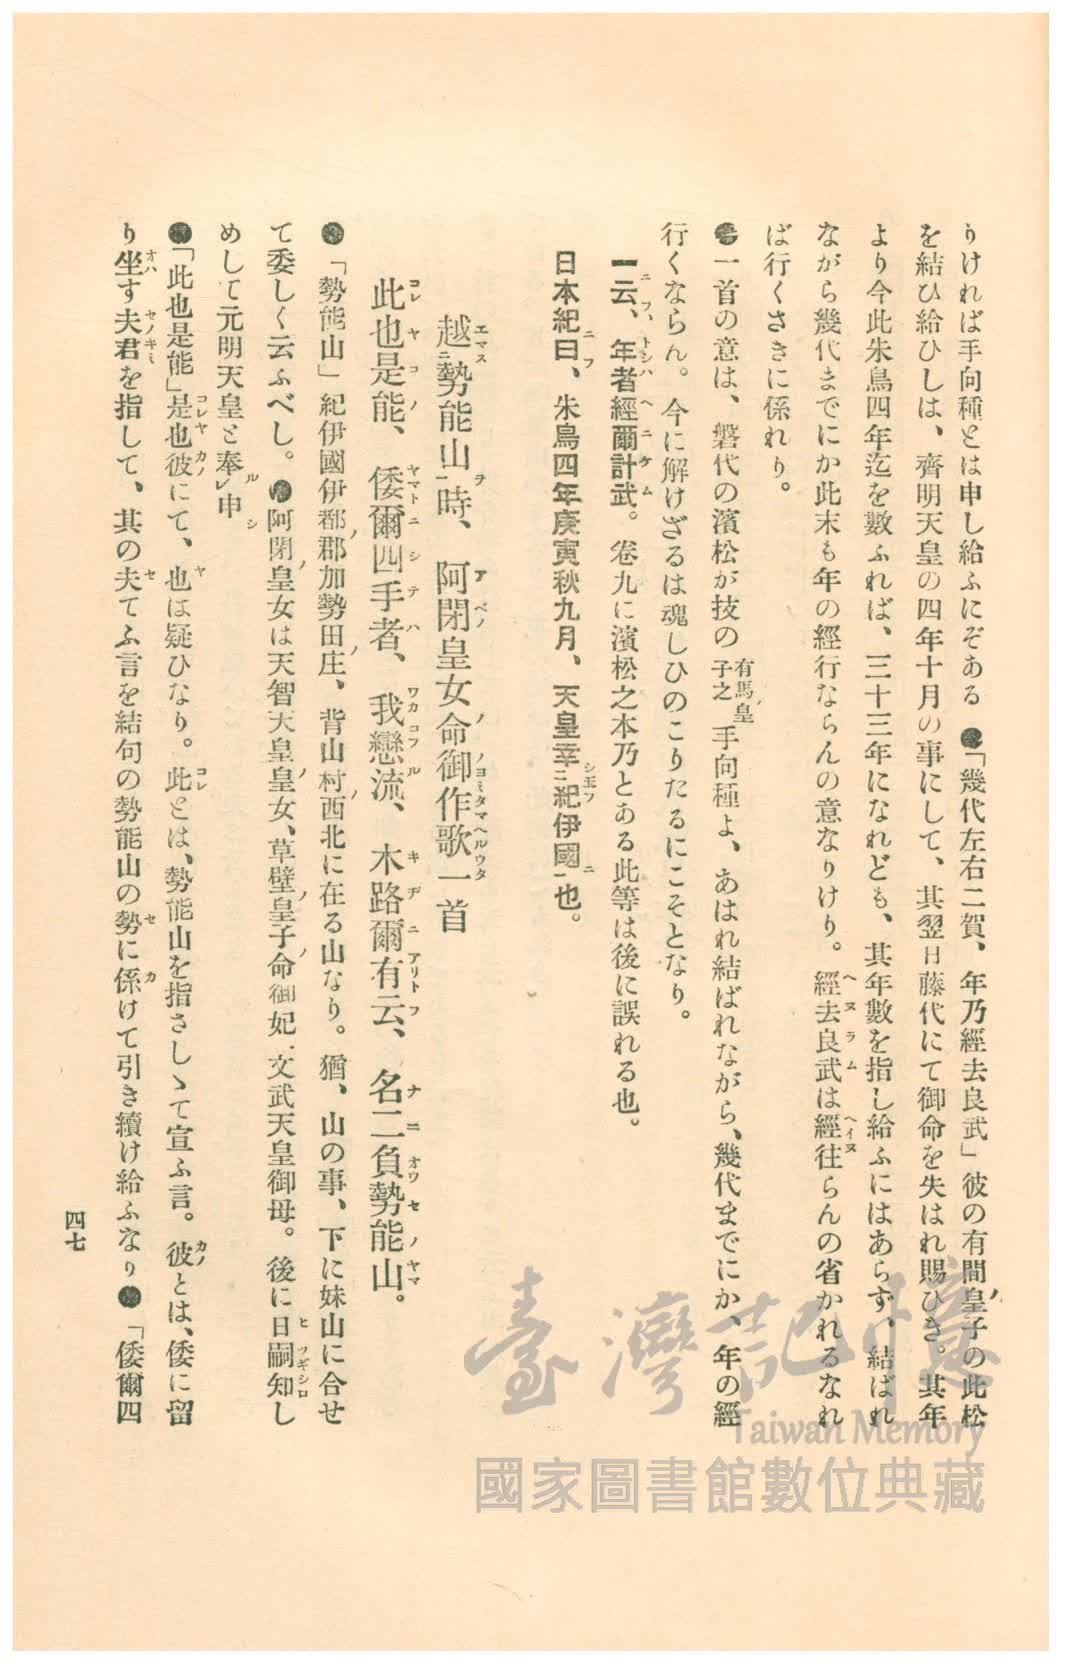 りければ手向種とは申し給ふにぞある ●「幾代左右二賀、年乃經去良武」彼の有間皇子の此松
を結ひ給ひしは、齊明天皇の四年十月の事にして、其翌日藤代にて御命を失はれ賜ひき。其年
より今此朱鳥四年迄を數ふれば、三十三年になれども、其年數を指し給ふにはあらず、結ばれ
ながら幾代までにか此末も年の經行ならんの意なりけり。經去良武は經往らんの省かれるなれ
ば行くさきに係れり。
●一首の意は、磐代の濱松が技の有馬皇子之手向種よ、あはれ結ばれながら、幾代までにか、年の經
行くならん。今に解けざるは魂しひのこりたるにこそとなり。
一云、年者經爾計武。卷九に濱松之本乃とある此等は後に誤れる也。
日本紀曰、朱鳥四年庚寅秋九月、天皇幸ニ紀伊國一也。
越ニ勢能山一時、阿閉皇女命御作歌一首
此也是能、倭爾四手者、我戀流、木路爾有云、名二負勢能山。
●「勢能山」紀伊國伊都郡加勢田庄、背山村西北に在る山なり。猶、山の事、下に妹山に合せ
て委しく云ふべし。●阿閉皇女は天智天皇皇女、草壁皇子命御妃、文武天皇御母。後に日嗣知し
めして元明天皇と奉レ申
●「此也是能」是也彼にて、也は疑ひなり。此とは、勢能山を指さしゝて宣ふ言。彼とは、倭に留
り坐す夫君を指して、其の夫てふ言を結句の勢能山の勢に係けて引き續け給ふなり●「倭爾四
四七
臺灣記憶
Taiwan Memory
國家圖書館數位典藏